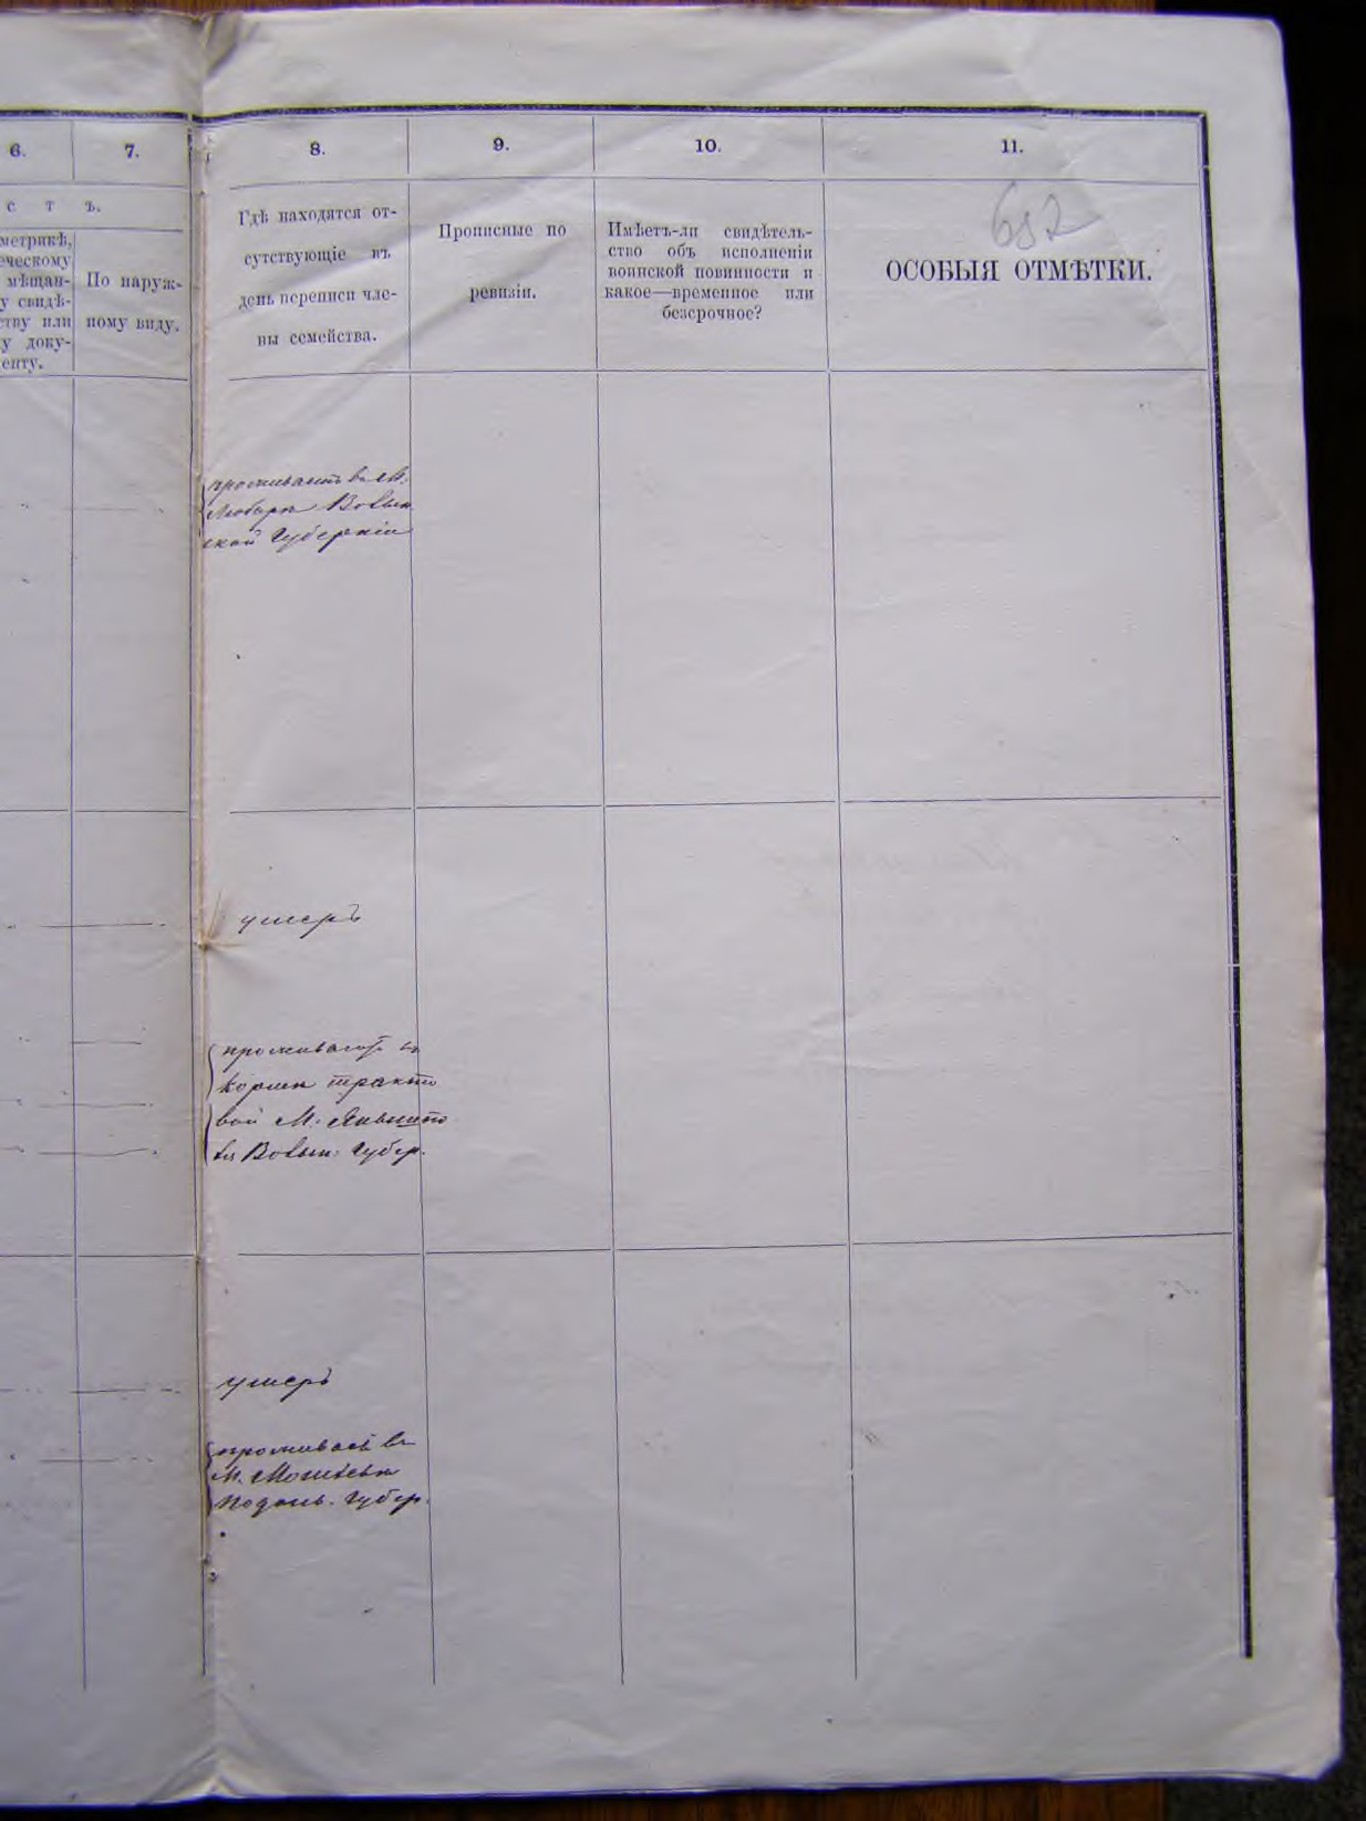 6.
7.
8.
9.
10.
11.
с т ъ.
метрикѣ,
еческому
мѣщан-
у свидѣ-
ству или
у доку-
енту.
По наруж-
ному виду.
Гдѣ находятся от-
сутствующіе въ
день переписи чле-
ны семейства.
Прописные по
ревизіи.
Имѣетъ-ли свидѣтель-
ство объ исполненіи
воинской повинности и
какое—временное или
безсрочное?
652
ОСОБЫЯ ОТМѢТКИ.
проживаетъ въ М.
Любарѣ Волын
ской Губерніи
умеръ
проживают въ
кормѣ тракто
вой М.
Волын. Губер.
умеръ
проживает въ
М. Могилевѣ
Подоль. Губер.